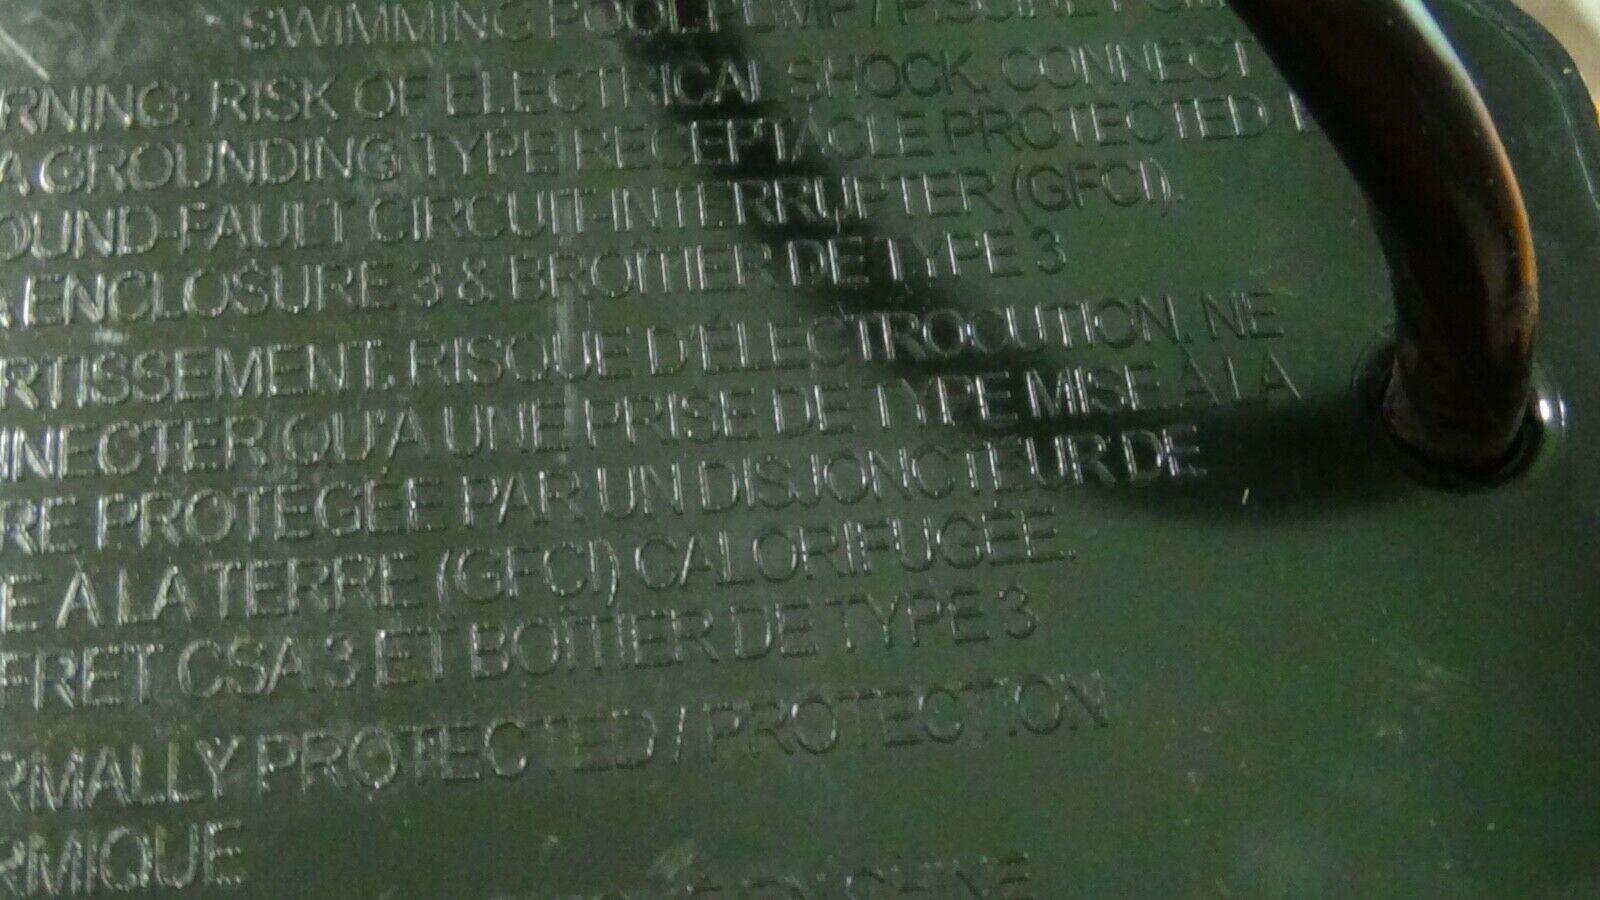 SWIMMING POOL PUMP /
RNING: RISK OF ELECTRICAL SHOCK. CONNECT
A GROUNDING TYPE RECEPTACLE PROTECTED
OUND-FAULT CIRCUIT-INTERRUPTER (GFCI).
A ENCLOSURE 3 & BROITIER DE TYPE 3
RTISSEMENT: RISQUE D'ÉLECTROCUTION. NE
NNECTER QU'A UNE PRISE DE TYPE MISE À LA
RE PROTEGÉE PAR UN DISJONCTEUR DE
E À LA TERRE (GFCI) CALORIFUGÉE.
FRET CSA 3 ET BOITIER DE TYPE 3
RMALLY PROTECTED / PROTECTION
RMIQUE